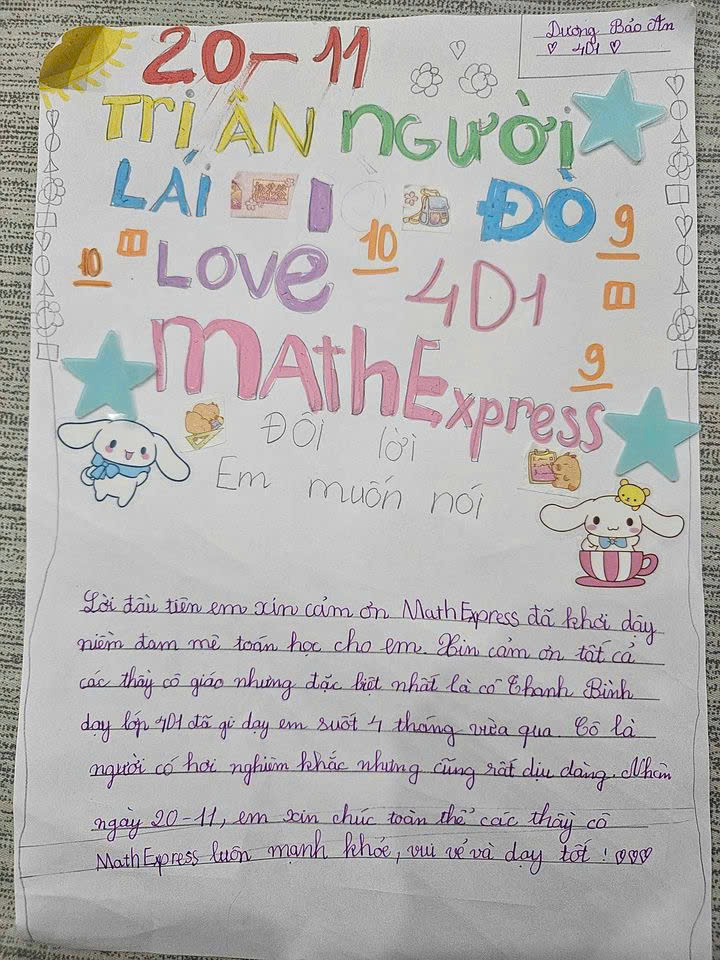 Dương Bảo An
♡ 4D1 ♡
20-11
TRI ÂN NGƯỜI
LÁI ĐÒ
9
10
10
LOVE 4D1
9
MAthExpress
ĐÔI lời
Em muốn nói
Lời đầu tiên em xin cảm ơn MathExpress đã khơi dậy
niềm đam mê toán học cho em. Xin cảm ơn tất cả
các thầy cô giáo nhưng đặc biệt nhất là cô Thanh Bình
dạy lớp 4D1 đã gi dạy em suốt 4 tháng vừa qua. Cô là
người có hơi nghiêm khắc nhưng cũng rất dịu dàng. Nhân
ngày 20-11, em xin chúc toàn thể các thầy cô
MathExpress luôn mạnh khỏe, vui vẻ và dạy tốt ! ♡♡♡